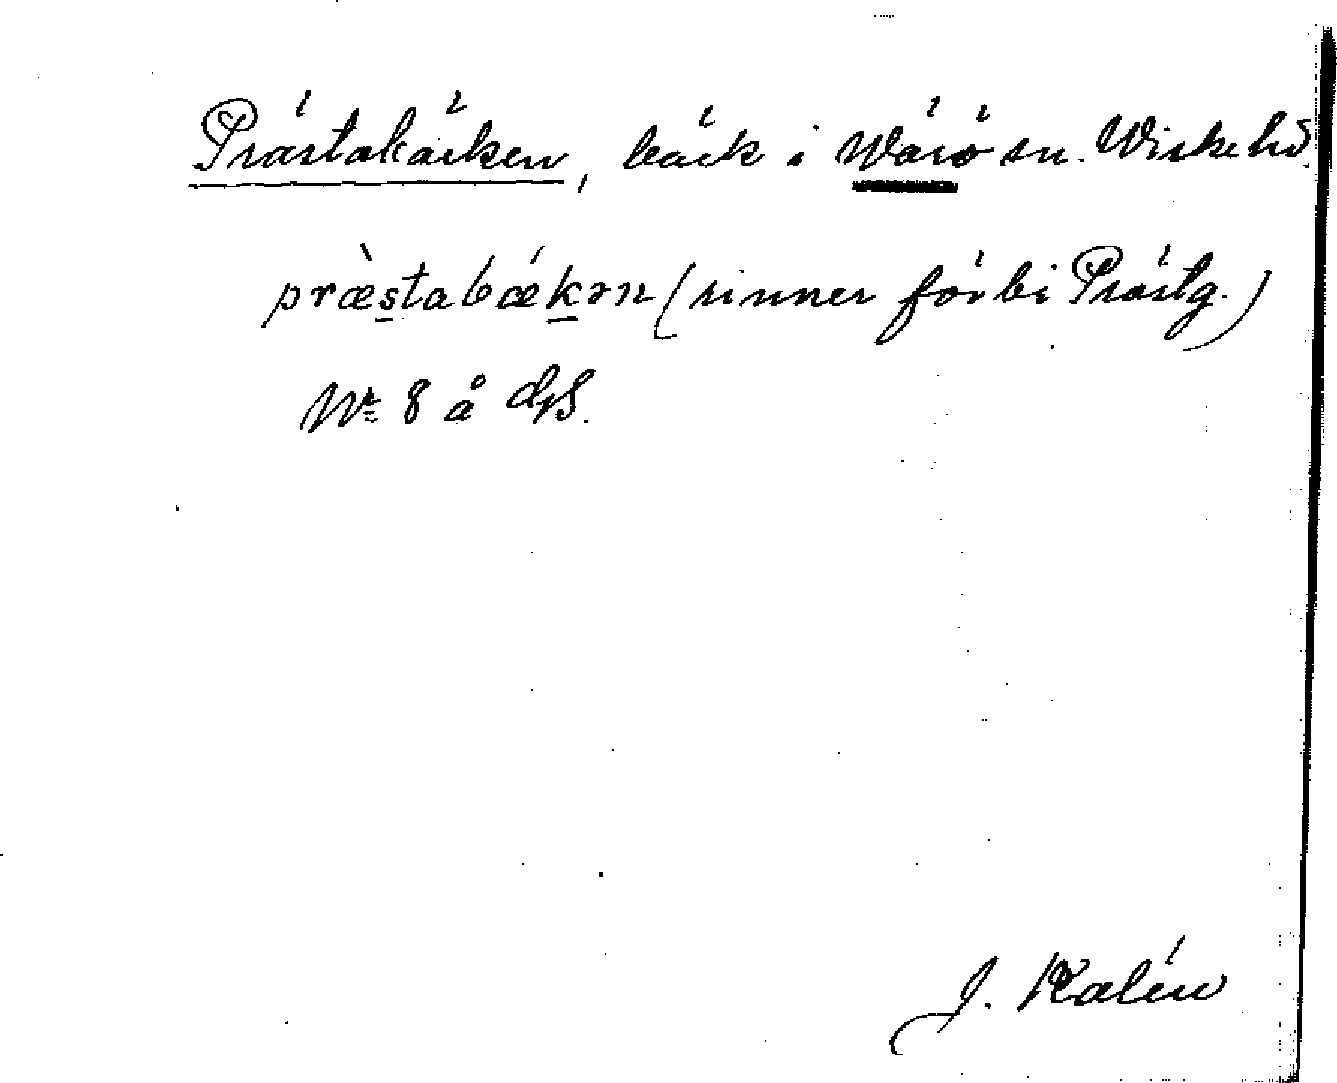 Prästabäcken, bäck i Wärö sn. Wiske hd.
præstabækən (rinner förbi Prästg.)
Nr 8 å GS.
J. Kalén